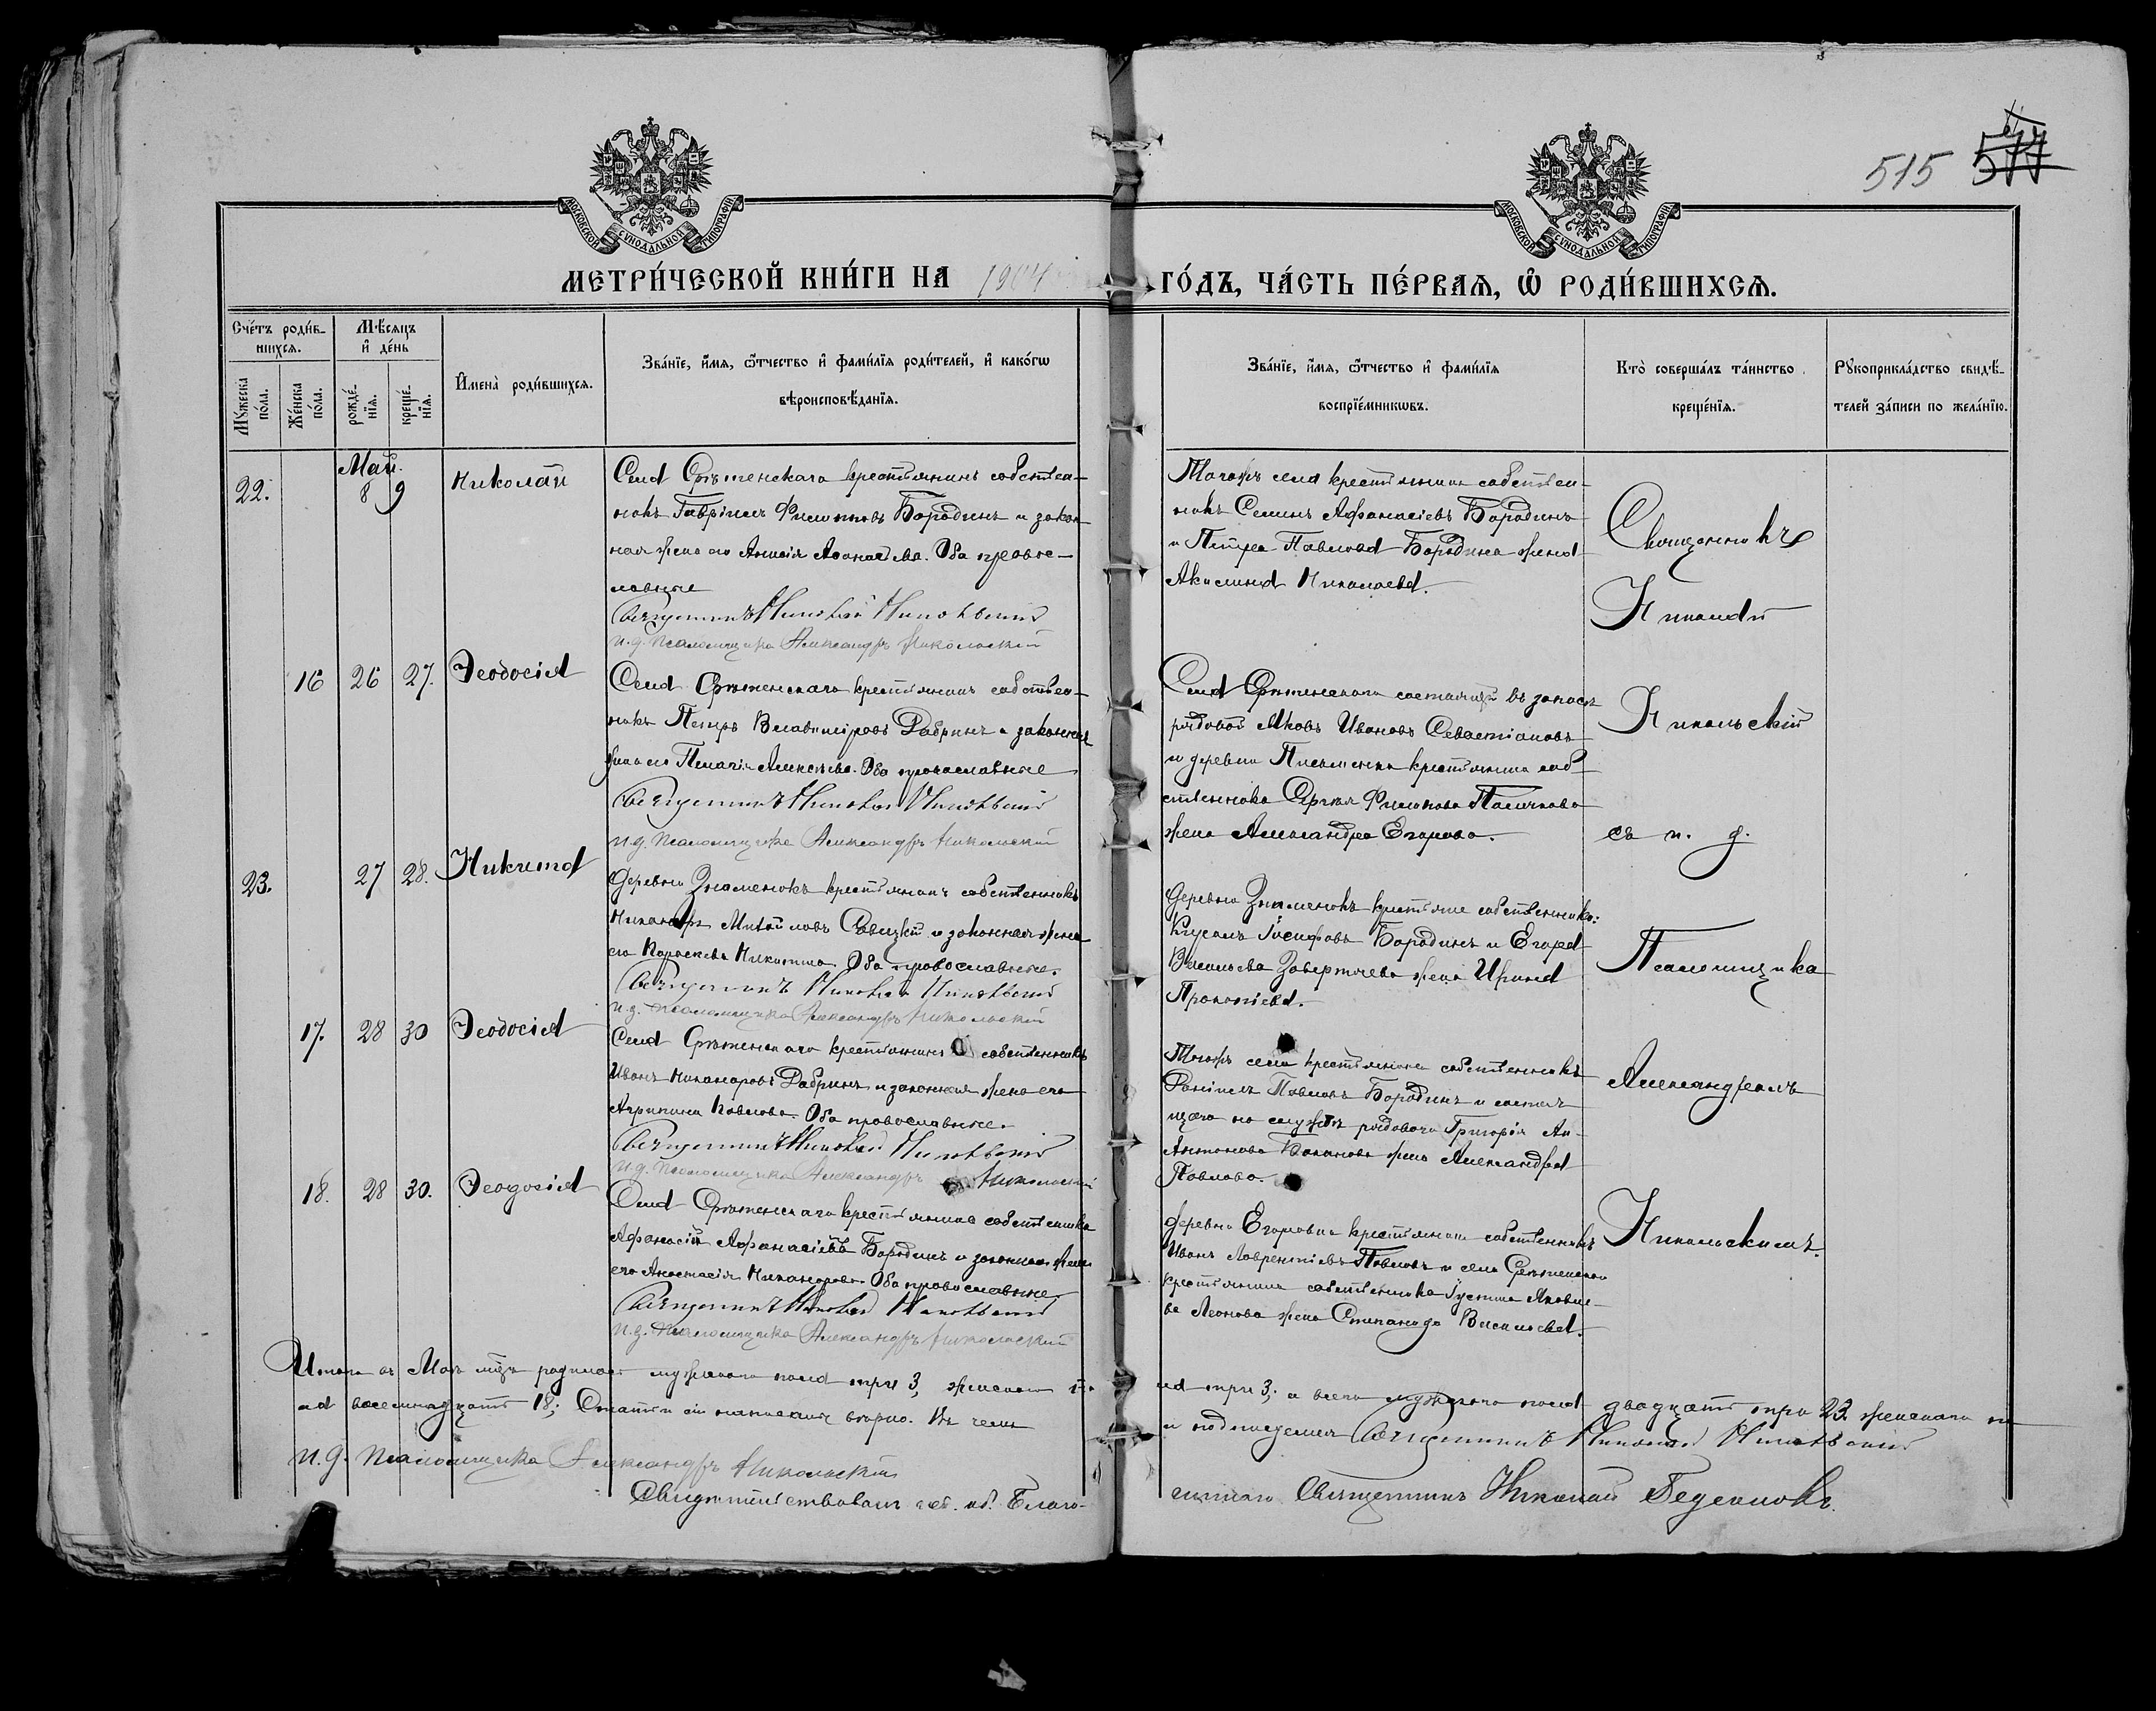 515 577
МОСКОВСКОЙ СѴНОДАЛЬНОЙ ТИПОГРАФІИ
МОСКОВСКОЙ СѴНОДАЛЬНОЙ ТИПОГРАФІИ
МЕТРИ́ЧЕСКОЙ КНИ́ГИ НА 1904 ГО́ДЪ, ЧА́СТЬ ПЕ́РВАѦ, Ѡ҆ РОДИ́ВШИХСѦ.
Сче́тъ роди́в-
шихсѧ.
Мꙋ́жеска по́ла.
Же́нска по́ла.
Мѣ́сѧцъ
и҆ де́нь
рожде́-
нїѧ.
креще́-
нїѧ.
И҆мена̀ роди́вшихсѧ.
Зва́нїе, и҆́мѧ, ѻ҆́тчество и҆ фами́лїѧ роди́телей, и҆ како́гѡ
вѣроисповѣ́данїѧ.
Зва́нїе, и҆́мѧ, ѻ҆́тчество и҆ фами́лїѧ
воспрїе́мникѡвъ.
Кто̀ соверша́лъ та́инство
креще́нїѧ.
Рꙋкоприкла́дство свидѣ́-
телей за́писи по жела́нїю.
Май.
22.
8 9
Николай
Села Срѣтенскаго крестьянинъ собствен-
никъ Гавріилъ Филиповъ Бородинъ и закон-
ная жена его Анисія Аѳанасьева. Оба право-
славные
Священникъ Николай Никольскій
и.д. псаломщика Александръ Никольскій
Тогожъ села крестьянинъ собствен-
никъ Семенъ Афанасіевъ Бородинъ
и Петра Павлова Бородина жена
Акилина Николаева.
Священникъ
Николай
Никольскій
съ и. д.
Псаломщика
Александромъ
Никольскимъ.
16 26 27.
Ѳеодосія
Села Срѣтенскаго крестьянинъ собствен-
никъ Петръ Владиміровъ Рабринъ и законная
жена его Пелагія Алексѣева. Оба православные
Священникъ Николай Никольскій
и.д. псаломщика Александръ Никольскій
Села Срѣтенскаго состоящій въ запасѣ
рядовой Яковъ Ивановъ Севастіановъ
и деревни Письменки крестьянина соб-
ственника Сергѣя Филипова
жена Александра Егорова.
23.
27 28.
Никита
Деревни Знаменокъ крестьянинъ собственникъ
Никаноръ Михайловъ Савицкій и законная жена
его Параскева Никитина. Оба православные.
Священникъ Николай Никольскій
и.д. псаломщика Александръ Никольскій
Деревни Знаменокъ крестьяне собственники:
Іосифовъ Бородинъ и Егора
Васильева жена Ирина
Прокопіева.
17. 28 30
Ѳеодосія
Села Срѣтенскаго крестьянинъ собственникъ
Иванъ Никаноровъ Рабринъ и законная жена его
Агрипина Павлова. Оба православные.
Священникъ Николай Никольскій
и.д. псаломщика Александръ Никольскій
Тогожъ села крестьянинъ собственникъ
Даніилъ Павловъ Бородинъ и состоя-
щаго на службѣ рядового Григорія Ан-
Антонова жена Александра
Павлова.
18. 28 30.
Ѳеодосія
Села Срѣтенскаго крестьянинъ собственникъ
Афанасій Афанасіевъ Бородинъ и законная жена
его Анастасія Никанорова. Оба православные.
Священникъ Николай Никольскій
и.д. псаломщика Александръ Никольскій
Деревни Егоровки крестьянинъ собственникъ
Иванъ Лаврентіевъ Павловъ и села Срѣтенскаго
крестьянина собственника Іустина Яковле-
ва Леонова жена Степанида Васильева.
Итого въ Маѣ мцѣ родилось мужскаго пола три 3, женскаго по-
ла три 3; а всего мужскаго пола двадцать три 23 женскаго по-
ла восемнадцать 18; Статьи сіи писаны вѣрно. Въ чемъ
и подписуемся Священникъ Николай Никольскій
и.д. псаломщика Александръ Никольскій
Свидѣтельствовалъ Благо-
чинный Священникъ Николай